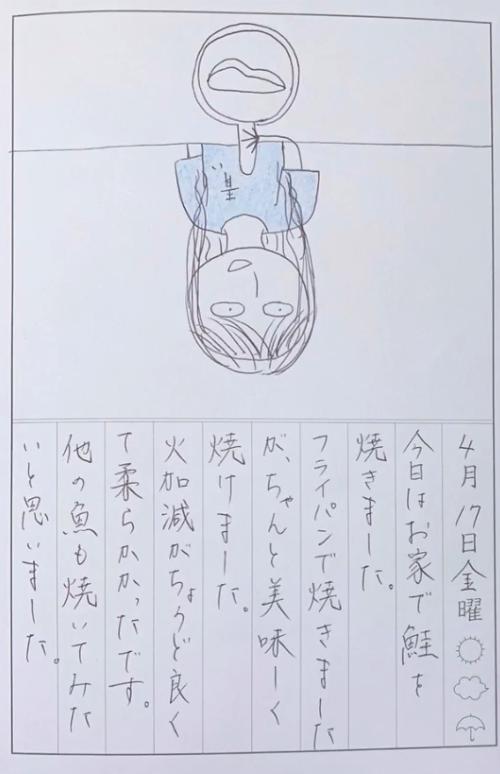 4月17日金曜
今日はお家で鮭を
焼きました。
フライパンで焼きました
が、ちゃんと美味しく
焼けました。
火加減がちょうど良く
て柔らかかったです。
他の魚も焼いてみた
いと思いました。